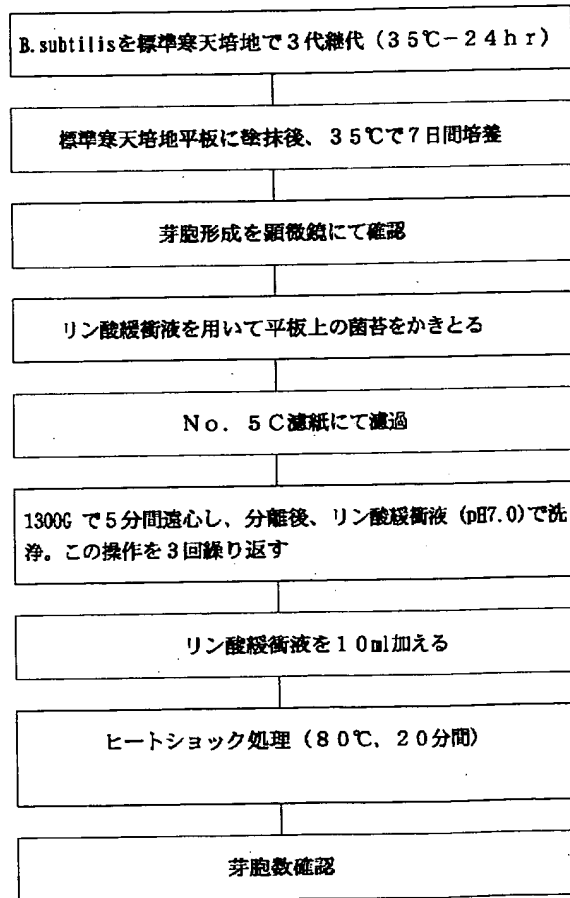 B.subtilisを標準寒天培地で3代継代(35℃-24hr)
標準寒天培地平板に塗抹後、35℃で7日間培養
芽胞形成を顕微鏡にて確認
リン酸緩衝液を用いて平板上の菌苔をかきとる
No. 5C濾紙にて濾過
1300G で5分間遠心し、分離後、リン酸緩衝液 (pH7.0)で洗
浄。この操作を3回繰り返す
リン酸緩衝液を10ml加える
ヒートショック処理(80℃, 20分間)
芽胞数確認